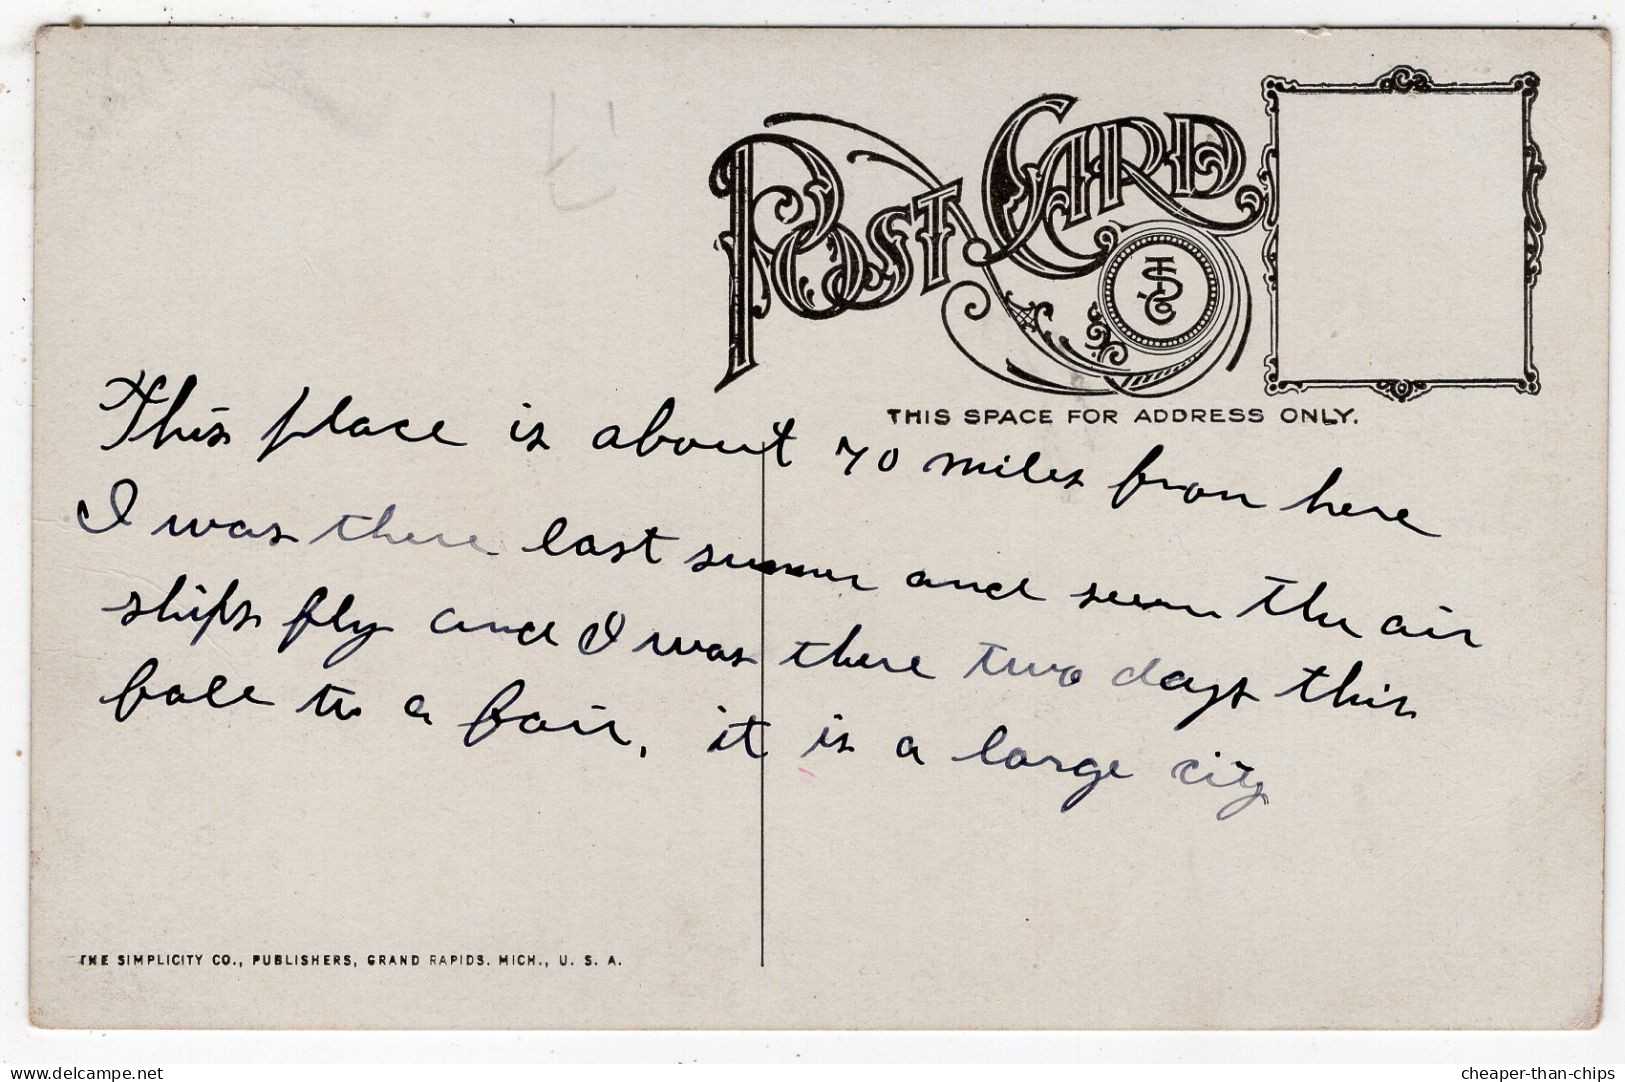 POST CARD
TSCo
THIS SPACE FOR ADDRESS ONLY.
This place is about 70 miles from here
I was there last summer and seen the air
ships fly and I was there two days this
fale to a fair, it is a large city
THE SIMPLICITY CO., PUBLISHERS, GRAND RAPIDS. MICH., U. S. A.
www.delcampe.net
cheaper-than-chips